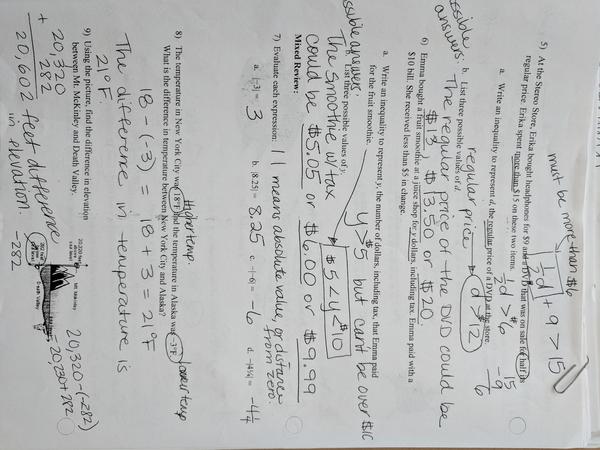 must be more than $6
5) At the Stereo Store, Erika bought headphones for $9 and a DVD that was on sale for half its
regular price. Erika spent more than $15 on these two items.
½d + 9 > 15
a. Write an inequality to represent d, the regular price of a DVD at the store.
½d > $6
15
-9
6
regular price
d > $12
b. List three possible values of d.
possible answers: The regular price of the DVD could be
$13, $13.50 or $20.
6) Emma bought a fruit smoothie at a juice shop for y dollars, including tax. Emma paid with a
$10 bill. She received less than $5 in change.
a. Write an inequality to represent y, the number of dollars, including tax, that Emma paid
for the fruit smoothie.
y > $5 but can't be over $10
$5 < y < $10
b. List three possible values of y.
possible answers:
The smoothie w/ tax
could be $5.05 or $6.00 or $9.99
Mixed Review:
7) Evaluate each expression: | | means absolute value, or distance
from zero.
a. |-3| = 3
b. |8.25| = 8.25
c. |-6| = 6
d. -|4¼| = -4¼
higher temp.
lower temp
8) The temperature in New York City was 18°F; the temperature in Alaska was -3°F.
What is the difference in temperature between New York City and Alaska?
18 - (-3) = 18 + 3 = 21°F
The difference in temperature is
21°F.
9) Using the picture, find the difference in elevation
between Mt. McKinley and Death Valley.
20,320
+ 282
20,602 feet difference
in elevation
Mt. McKinley
Death Valley
-282
20,320 - (-282)